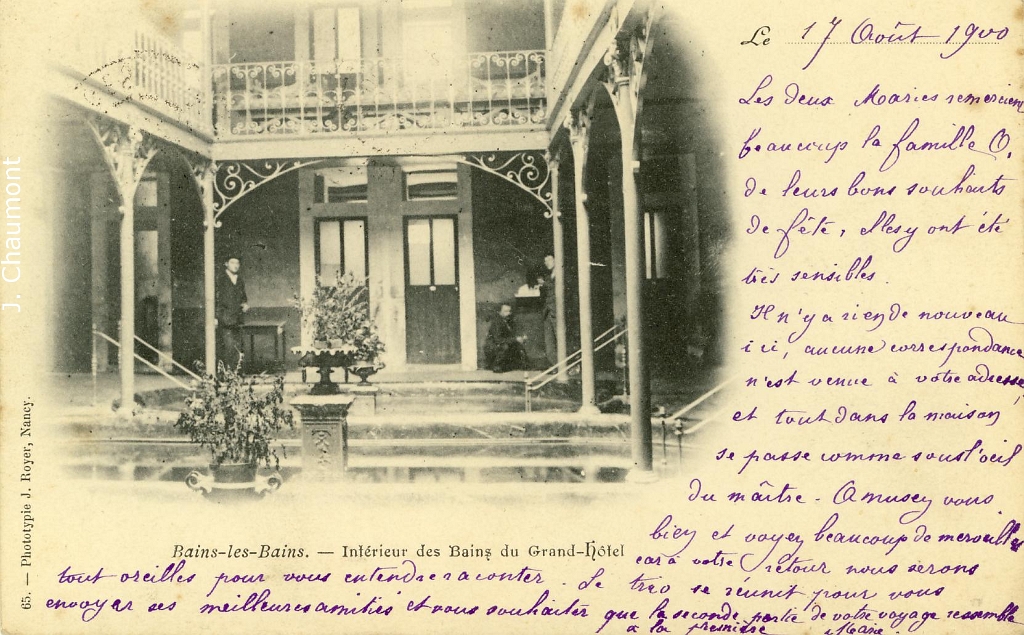 Le 17 Août 1900
Les deux Maries remercient
beaucoup la famille O.
de leurs bons souhaits
de fête, elles y ont été
très sensibles.
Il n'y a rien de nouveau
ici, aucune correspondance
n'est venue à votre adresse,
et tout dans la maison
se passe comme sous l'oeil
du maître. Amusez vous
bien et voyez beaucoup de merveilles
car à votre retour nous serons
tout oreilles pour vous entendre raconter. Le trio se réunit pour vous
envoyer ses meilleures amitiés et vous souhaiter que la seconde partie de votre voyage ressemble
à la première Marie.
Bains-les-Bains. — Intérieur des Bains du Grand-Hôtel
65. — Phototypie J. Royer, Nancy.
J. Chaumont